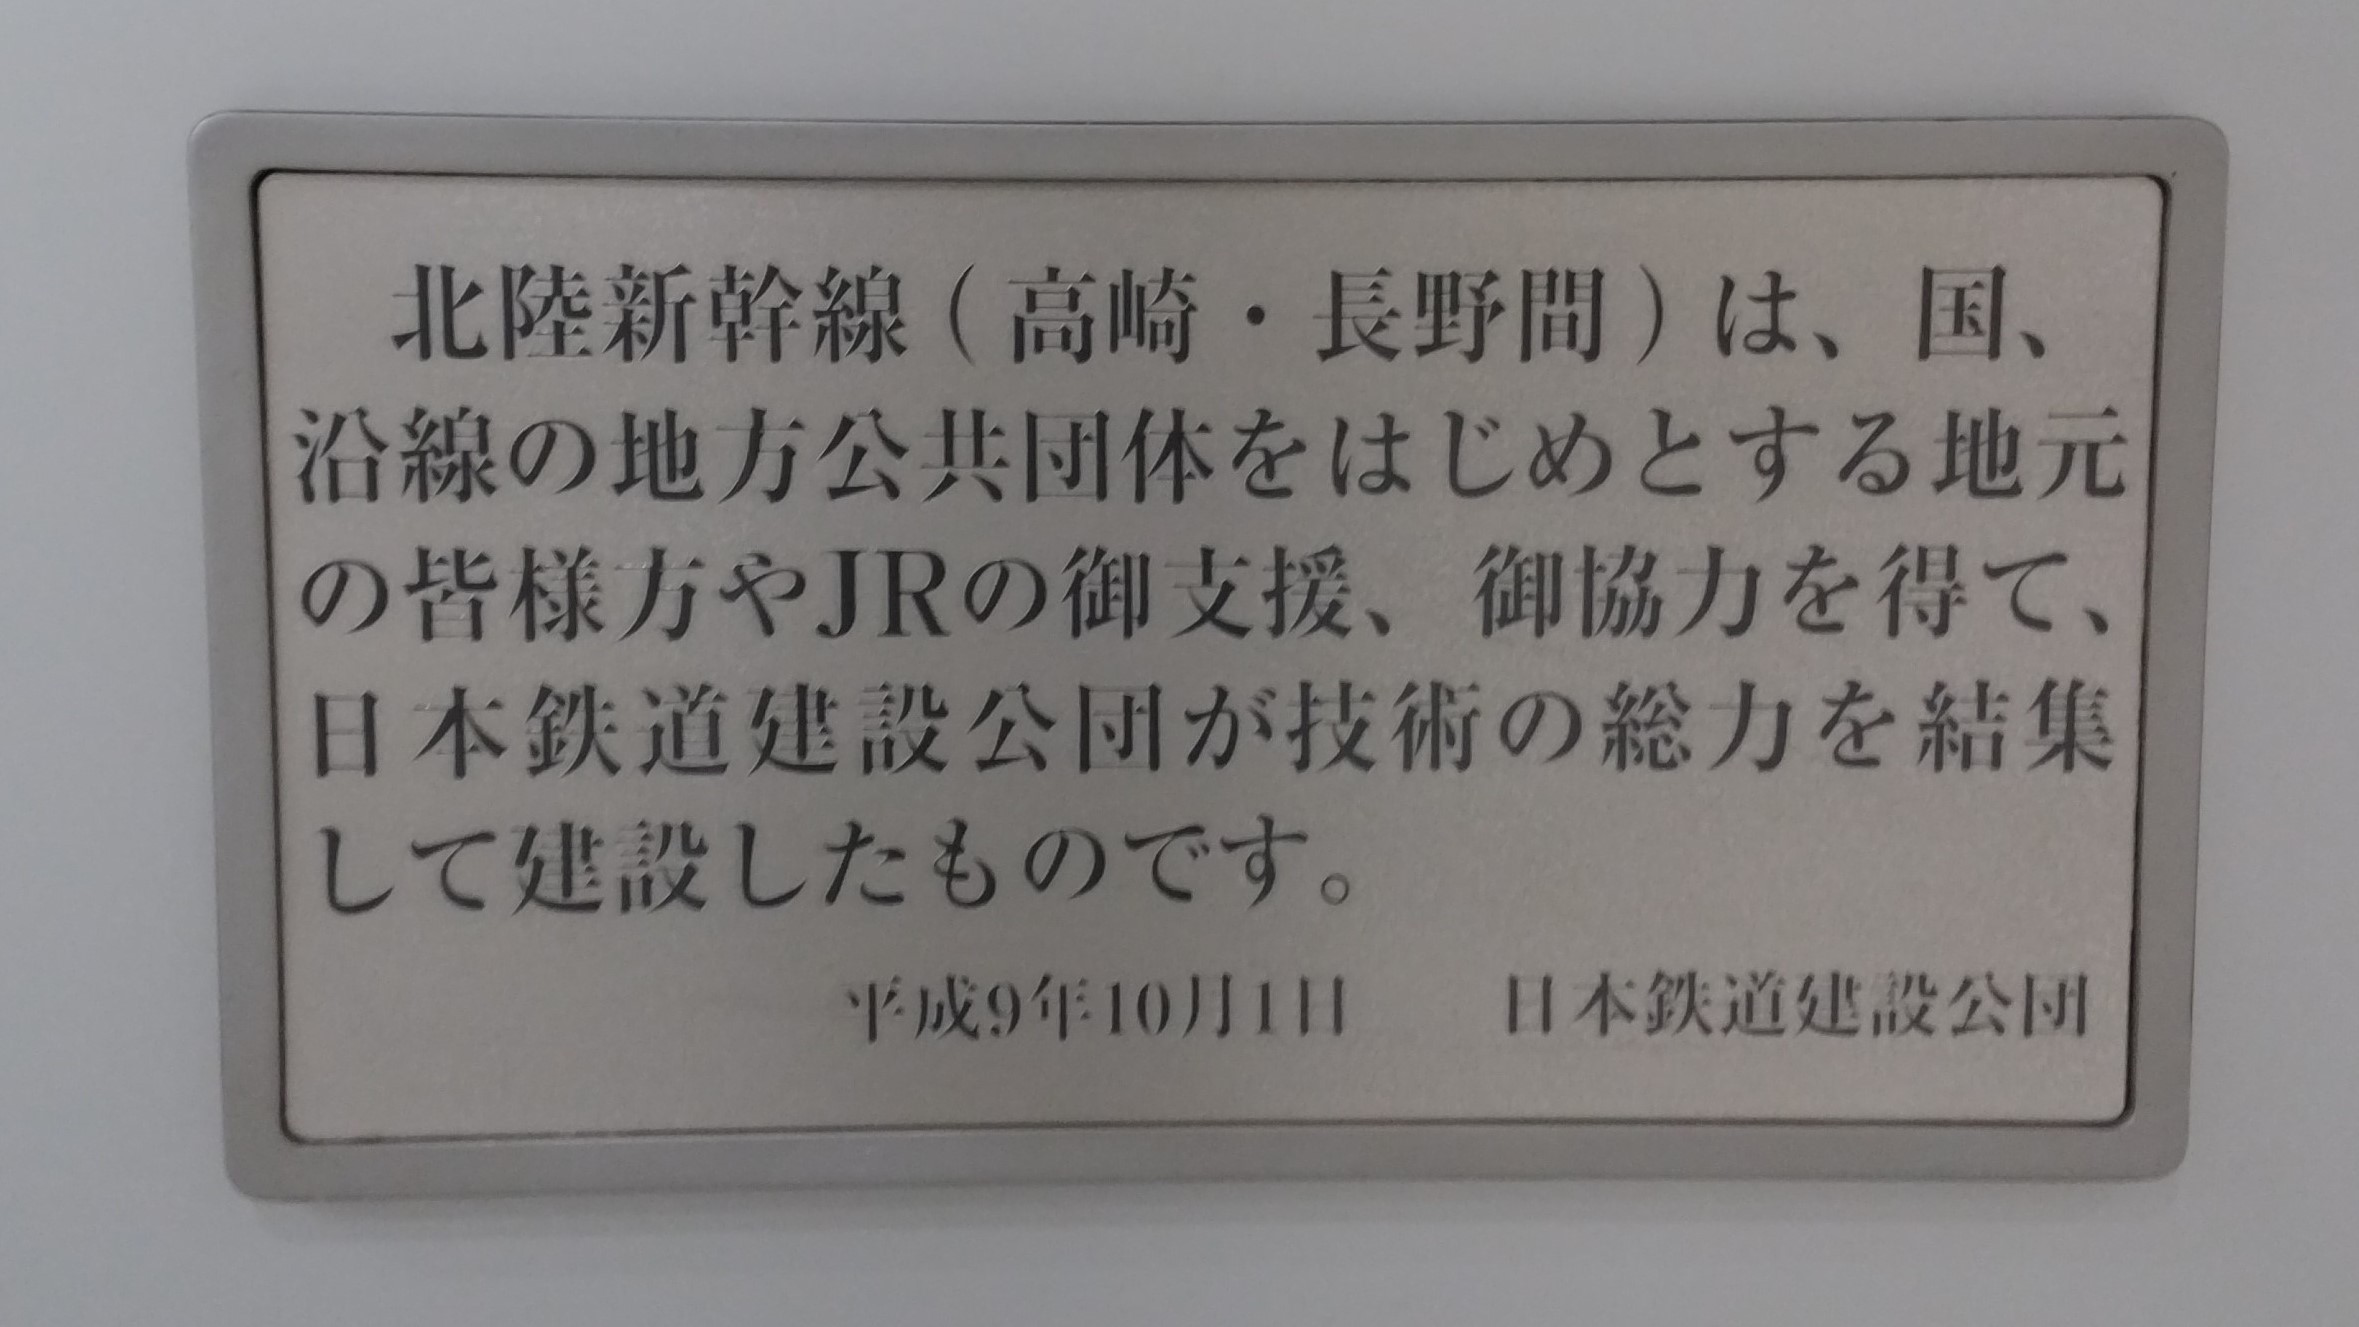 北陸新幹線(高崎・長野間)は、国、
沿線の地方公共団体をはじめとする地元
の皆様方やJRの御支援、御協力を得て、
日本鉄道建設公団が技術の総力を結集
して建設したものです。
平成9年10月1日　日本鉄道建設公団